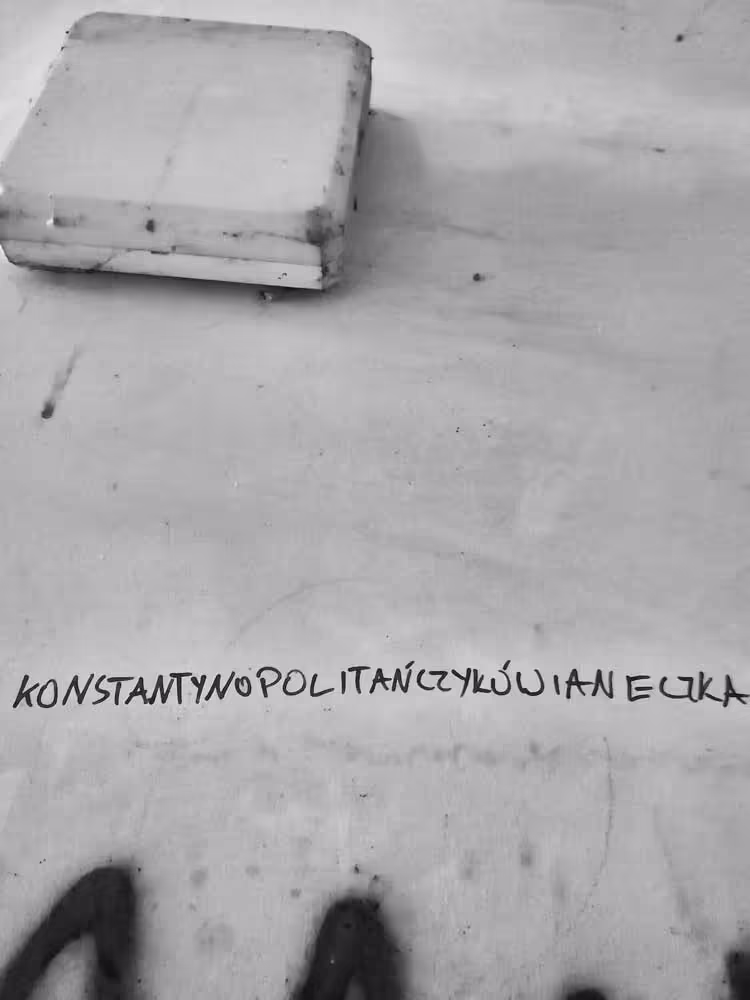 KONSTANTYNOPOLITAŃCZYKÓWIANECZKA